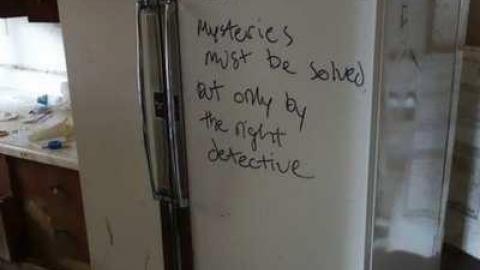 Mysteries
must be solved
But only by
the right
detective